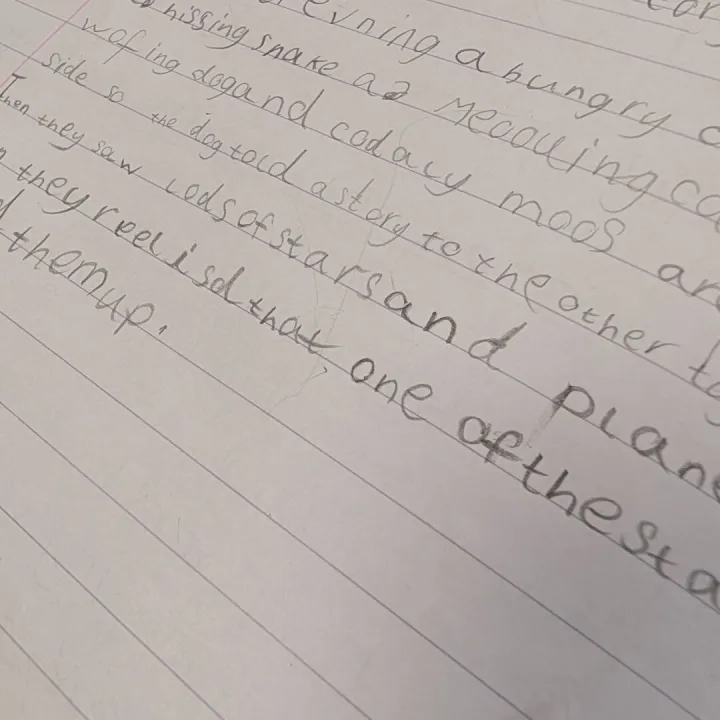 evning a hungry
hissing snake a meoouing ca
wofing dog and cod acy moos an
side so the dog told a story to the other
Then they saw lods of stars and plane
they reelisd that one of the sta
them up.